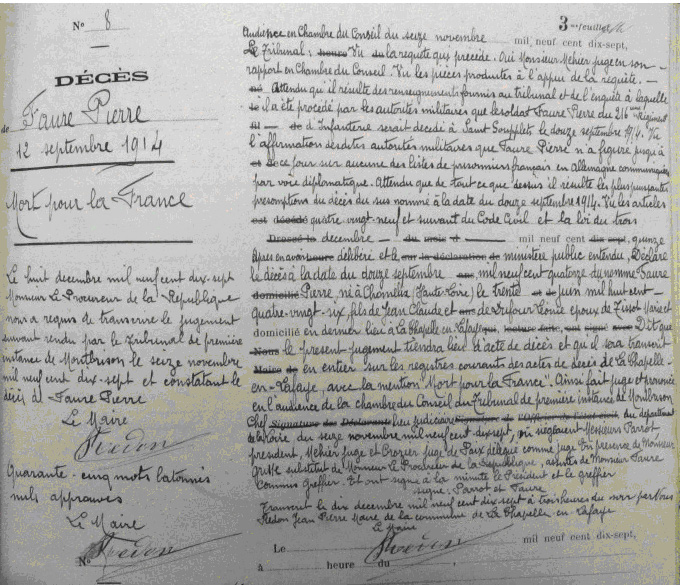 N° 8
DÉCÈS
de Faure Pierre
12 septembre 1914
Mort pour la France
Le huit decembre mil neuf cent dix-sept
Monsieur Le Procureur de la République
nous a requis de transcrire le jugement
suivant rendu par le Tribunal de première
instance de Montbrison le seize novembre
mil neuf cent dix-sept et constatant le
décès de Faure Pierre
Le Maire
Quarante-cinq mots batonnés
nuls approuvés
Le Maire
N°
3 feuillet
Audience en Chambre du Conseil du seize novembre mil neuf cent dix-sept,
Le Tribunal: heure Vu du la requête qui précède. Oui Monsieur Mehier juge en son
rapport en Chambre du Conseil. Vu les pièces produites à l'appui de la requête. —
Attendu qu'il résulte des renseignements fournis au tribunal et de l'enquête à laquelle
il a été procédé par les autorités militaires que le soldat Faure Pierre du 216 eme Régiment
de d'Infanterie serait decedé à Saint Soupplets le douze septembre 1914. Vu
l'affirmation desdites autorités militaires que Faure Pierre n'a figuré jusqu'à
ce jour sur aucune des listes de prisonniers français en Allemagne communiquées
par voie diplomatique. Attendu que de tout ce que dessus il résulte les plus puissantes
presomptions du décès du sus nommé à la date du douze septembre 1914. Vu les articles
est décédé quatre vingt-neuf et suivant du Code Civil et la loi du trois
Dressé le decembre — du mois d mil neuf cent dix sept, quinze
Après en avoir heure déliberé et le sur la déclaration de ministère public entendu, Déclare
le décès à la date du douze septembre mil neuf cent quatorze du nommé Faure
domicilié Pierre, né à Chomelix (Haute-Loire) le trente et de juin mil huit cent
quatre-vingt-six, fils de Jean Claude et de epoux de Tissot Marie et
domicilié en dernier lieu à la Chapelle en Lafaye lecture faite, ont signé avec Dit que
Nous le présent jugement tiendra lieu d'acte de décès et qu'il sera transcrit
Maire de en entier sur les registres courants des actes de décès de La Chapelle-
en-Lafaye, avec la mention "Mort pour la France". Ainsi fait jugé et prononcé
en l'audience de la chambre du Conseil du Tribunal de première instance de Montbrison
Chef Signature des Déclarants lieu judiciaire de l'Officier de l'état civil du département
de la Loire du seize novembre mil neuf cent dix-sept, où siégeaient Messieurs Parrot
president, Mehier juge et Crozier juge de Paix délégué comme juge En presence de Monsieur
substitut de Monsieur Le Procureur de la République, assistés de Monsieur Faure
Commis greffier. Et ont signé à la minute le Président et le greffier
signé: Parrot et Faure
Transcrit le dix decembre mil neuf cent dix-sept à trois heures du soir par Nous
Jean Pierre Maire de la commune de La Chapelle en-Lafaye
Le Maire
Le mil neuf cent dix-sept,
à heure du